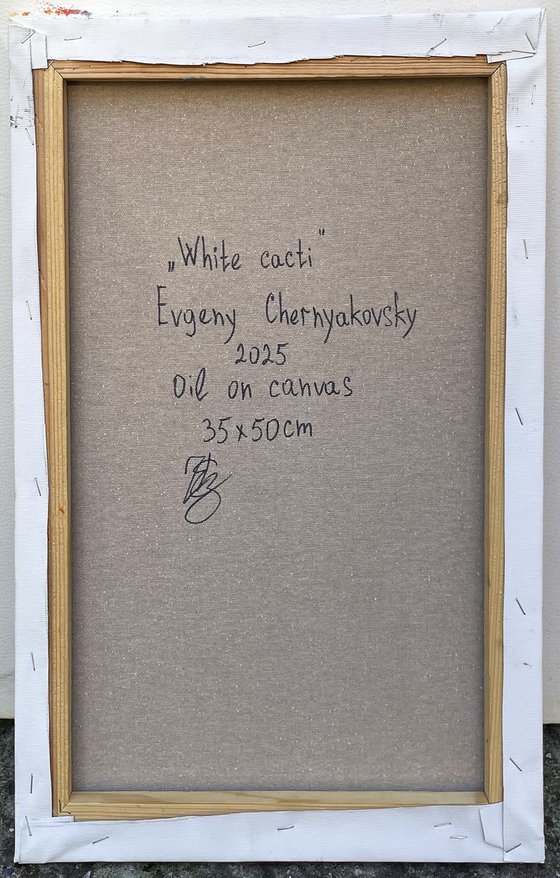 „White cacti"
Evgeny Chernyakovsky
2025
Oil on canvas
35x50cm